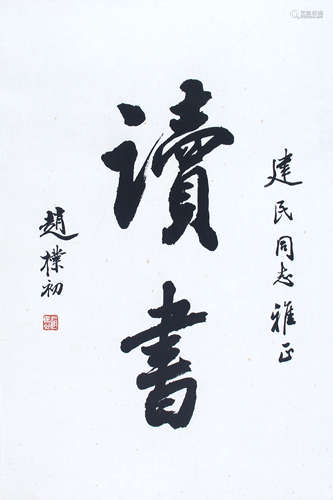 建民同志雅正
讀書
趙樸初